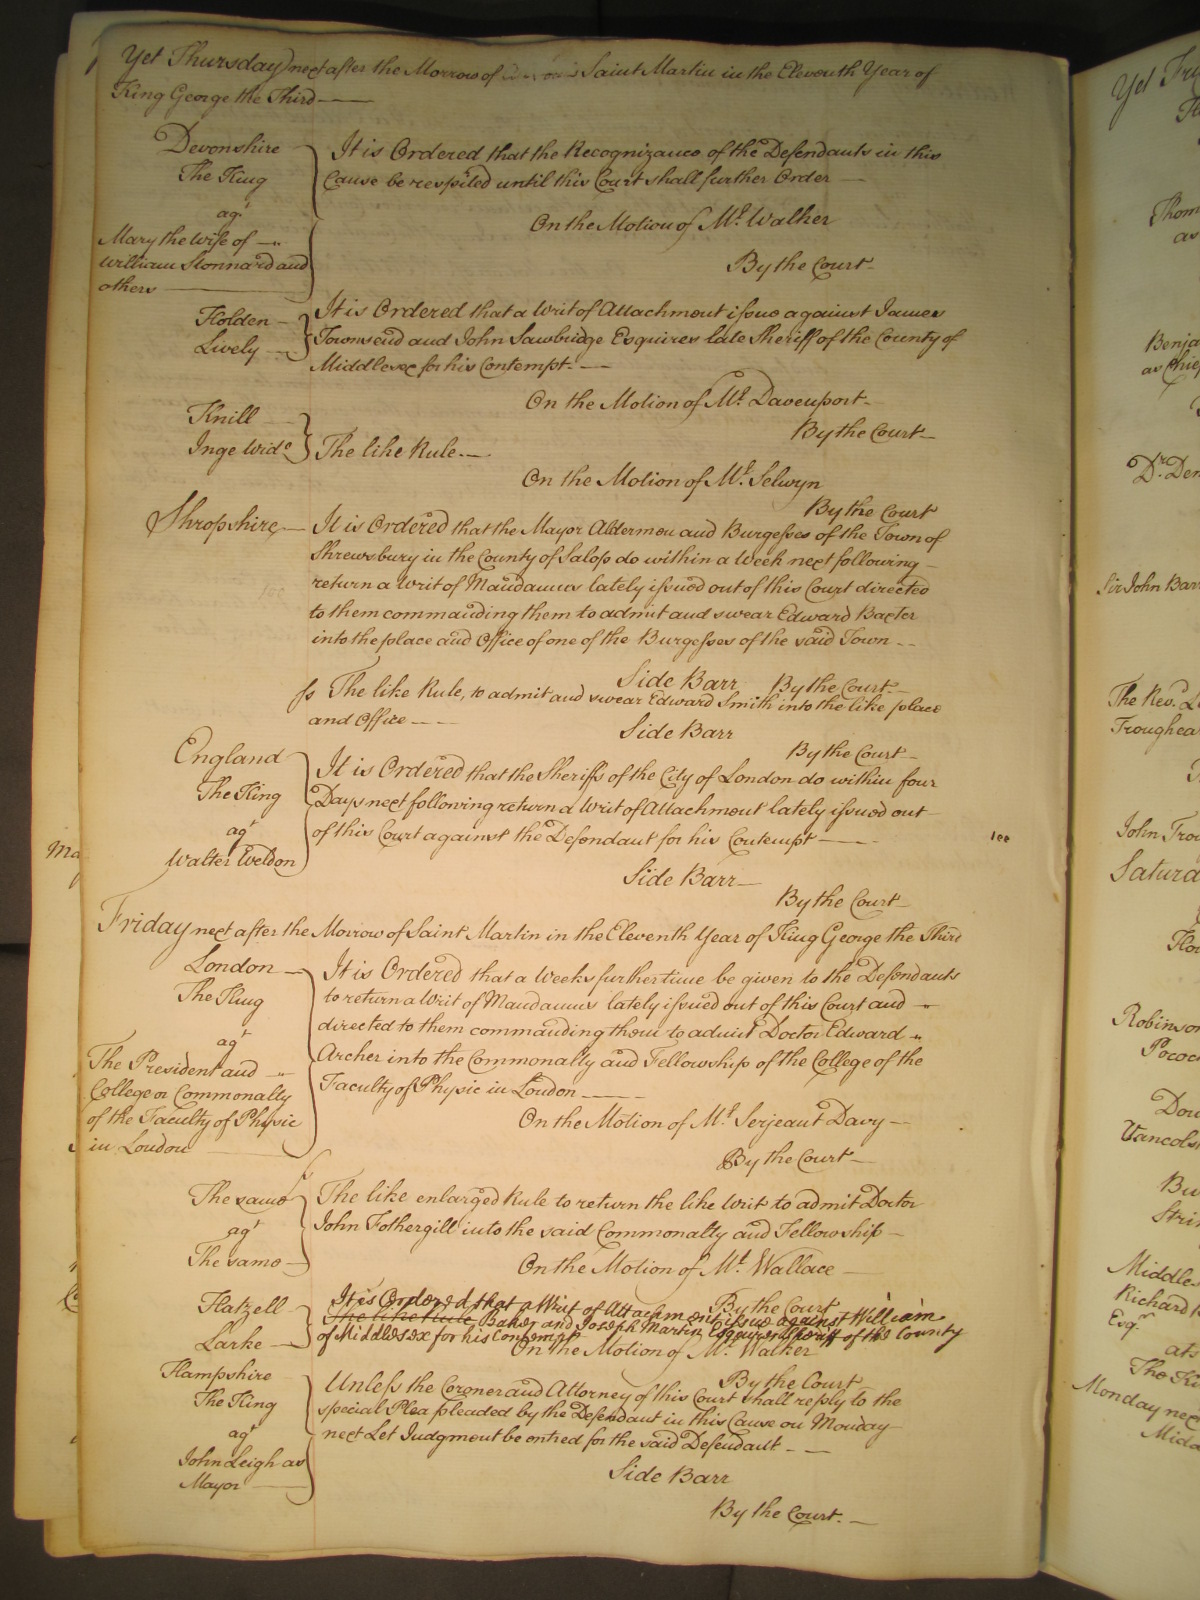 Yet Thursday next after the Morrow of Saint Martin in the Eleventh Year of
King George the Third
Devonshire
The King
agt
Mary the Wife of
William Stonnard and
others
It is Ordered that the Recognizance of the Defendants in this
Cause be respited until this Court shall further Order
On the Motion of Mr. Walker
By the Court
Holden
Lively
It is Ordered that a Writ of Attachment issue against James
Townsend and John Sawbridge Esquires late Sheriff of the County of
Middlesex for his Contempt.
On the Motion of Mr. Davenport
By the Court
Knill
Inge Wido
The like Rule
On the Motion of Mr. Selwyn
By the Court
Shropshire
It is Ordered that the Mayor Aldermen and Burgesses of the Town of
Shrewsbury in the County of Salop do within a Week next following
return a Writ of Mandamus lately issued out of this Court directed
to them commanding them to admit and swear Edward Baxter
into the place and Office of one of the Burgesses of the said Town
Side Barr By the Court
ss The like Rule, to admit and swear Edward Smith into the like place
and Office
Side Barr
By the Court
England
The King
agt
Walter Eveldon
It is Ordered that the Sheriffs of the City of London do within four
Days next following return a Writ of Attachment lately issued out
of this Court against the Defendant for his Contempt
Side Barr
By the Court
Friday next after the Morrow of Saint Martin in the Eleventh Year of King George the Third
London
The King
agt
The President and
College or Commonalty
of the Faculty of Physic
in London
It is Ordered that a Weeks further time be given to the Defendants
to return a Writ of Mandamus lately issued out of this Court and
directed to them commanding them to admit Doctor Edward
Archer into the Commonalty and Fellowship of the College of the
Faculty of Physic in London
On the Motion of Mr. Serjeant Davy
By the Court
The same
agt
The same
The like enlarged Rule to return the like Writ to admit Doctor
John Fothergill into the said Commonalty and Fellowship
On the Motion of Mr. Wallace
By the Court
Hatzell
Larke
It is Ordered that a Writ of Attachment issue against William
The like Rule Baker and Joseph Martin Esquires Sheriff of the County
of Middlesex for his Contempt
On the Motion of Mr. Walker
By the Court
Hampshire
The King
agt
John Leigh as
Mayor
Unless the Coroner and Attorney of this Court shall reply to the
special Plea pleaded by the Defendant in this Cause on Monday
next Let Judgment be entred for the said Defendant
Side Barr
By the Court.
Yet
as
as
Sir John
The Rev.
John
Robinson
Middles
Richard
Esqr
ats
Monday next